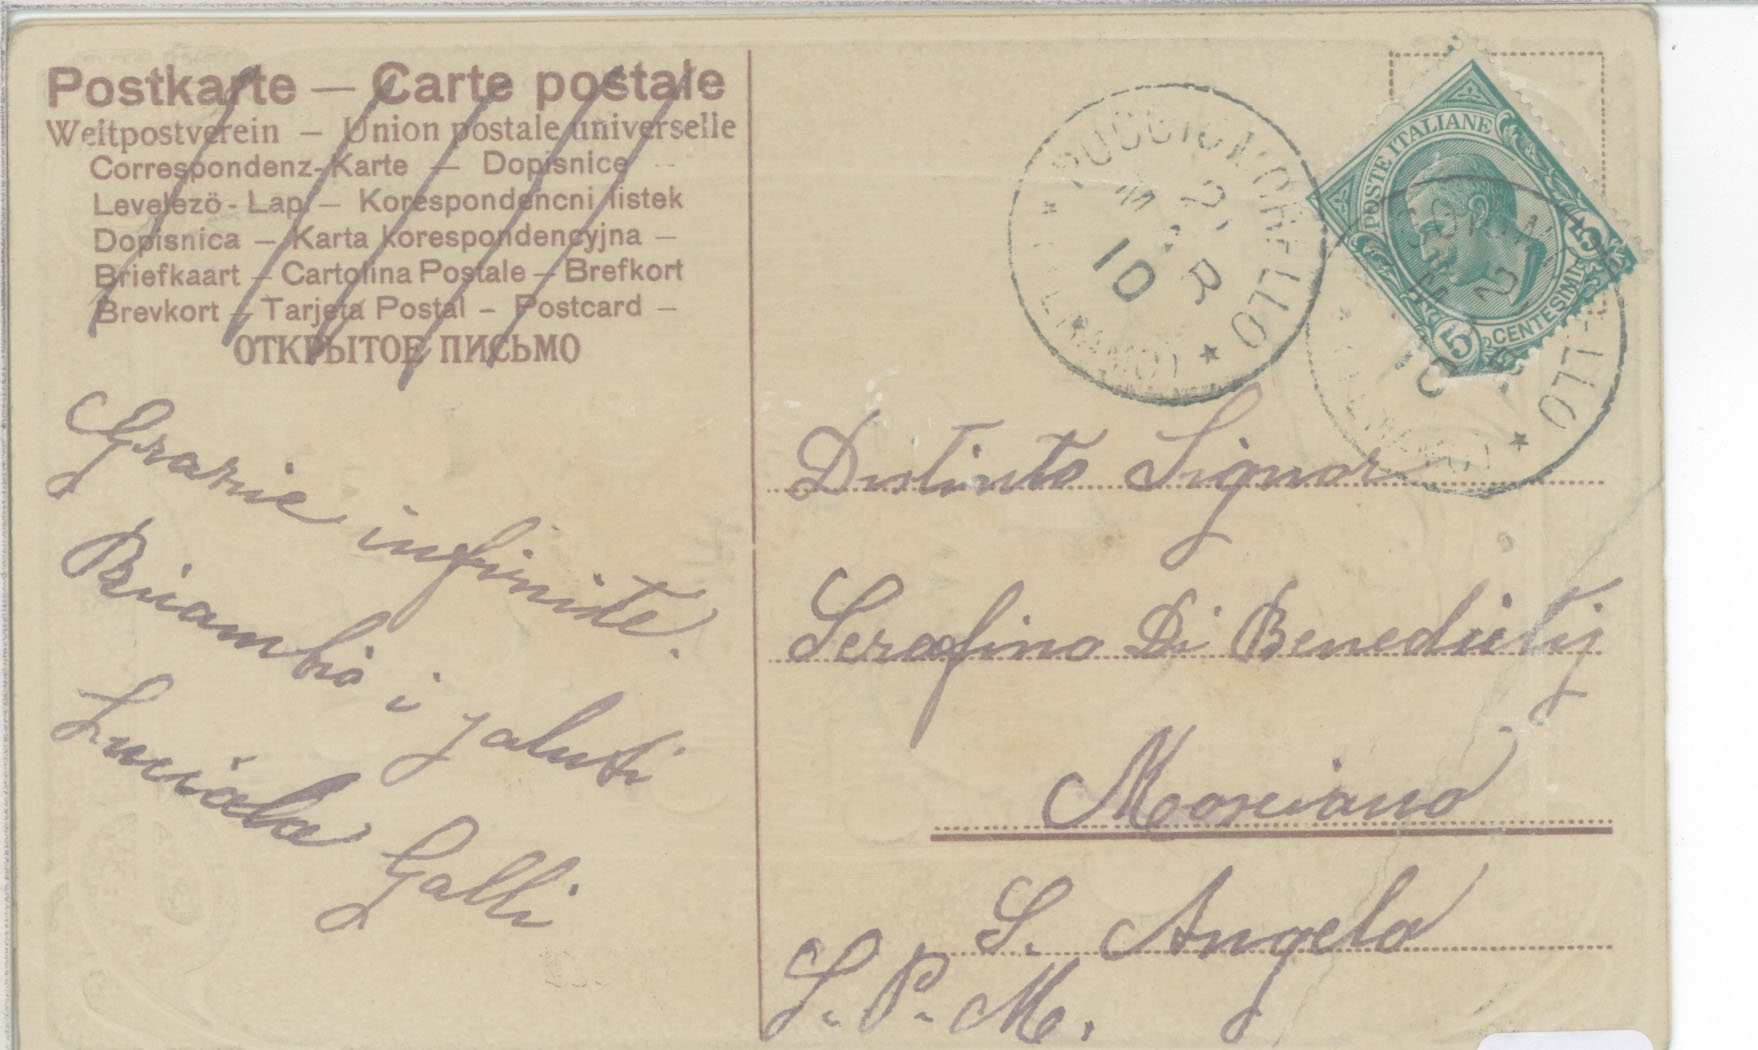 Postkarte – Carte postale
Weltpostverein – Union postale universelle
Correspondenz-Karte – Dopisnice –
Levelezö-Lap – Korespondencni listek
Dopisnica – Karta korespondencyjna –
Briefkaart – Cartolina Postale – Brefkort
Brevkort – Tarjeta Postal – Postcard –
ОТКРЫТОЕ ПИСЬМО
Grazie infinite.
Ricambio i saluti
Galli
POSTE ITALIANE
5 CENTESIMI 5
21 MAR 10
(TERAMO)
Distinto Signor
Serafino Di Benedictij
Mosciano
S. Angelo
S. P. M.